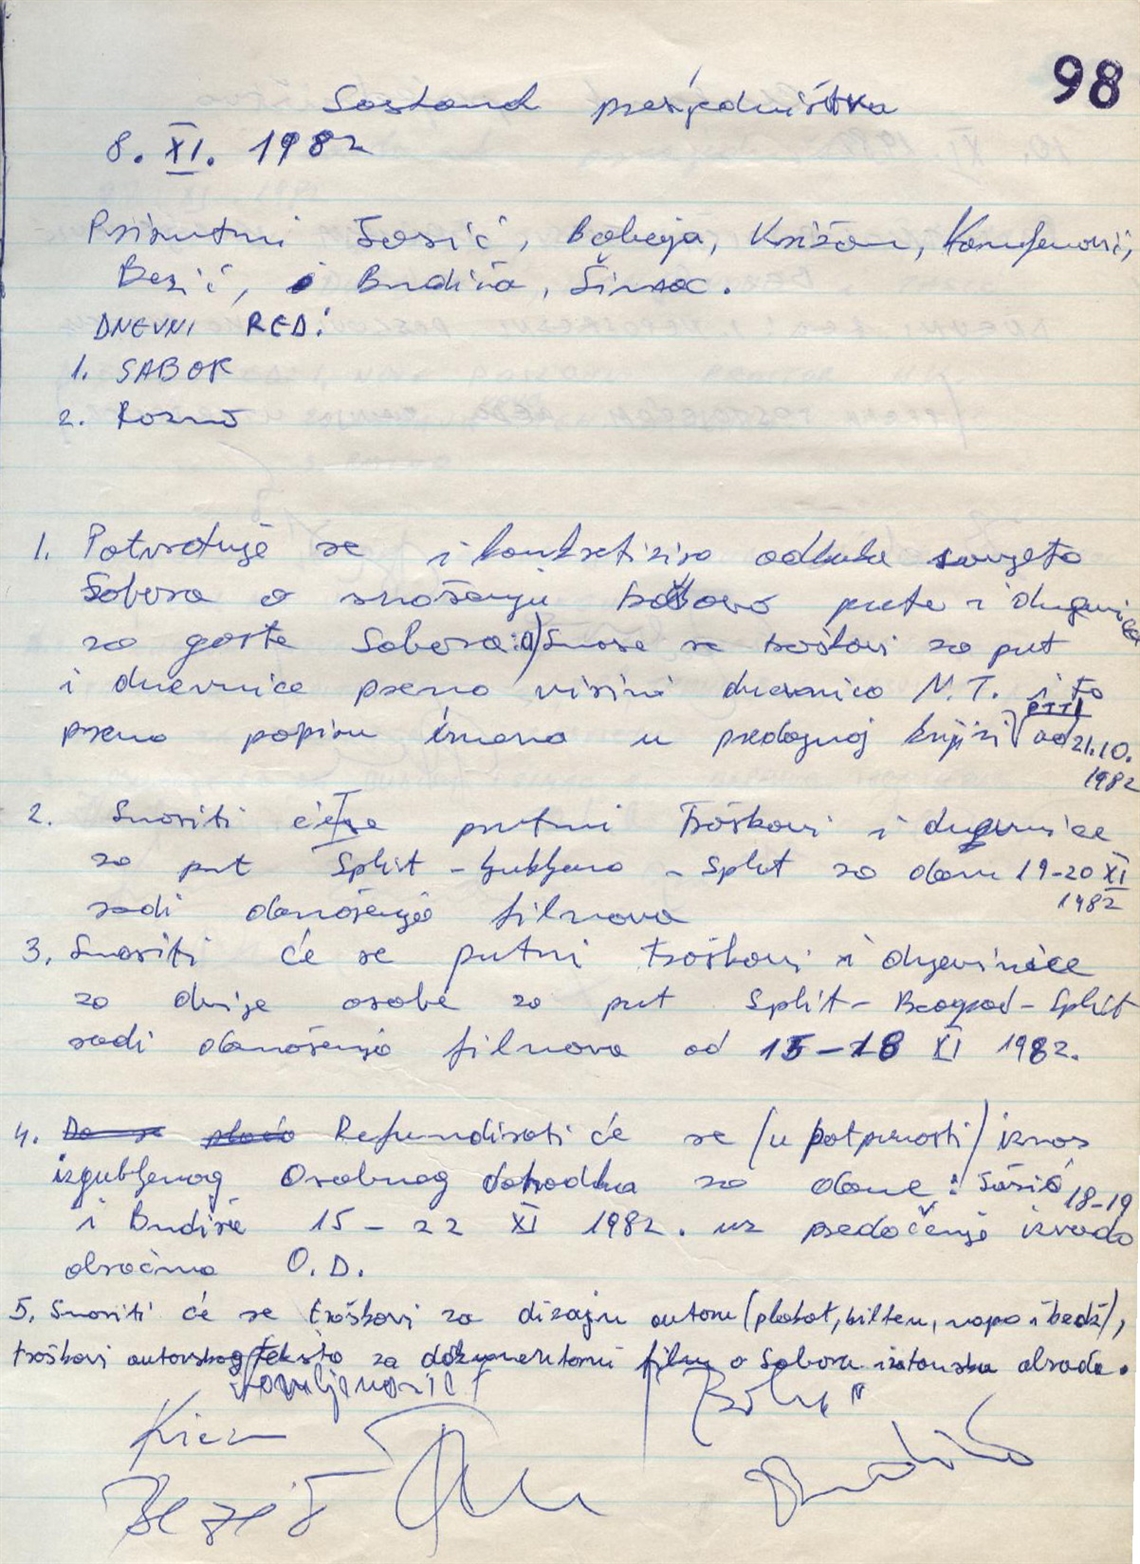 98
Sastanak presjedništva
8. XI. 1982
Prisutni Šarić, Bobeja, Križan,
Bezić, Budiša, Šimac.
DNEVNI RED:
1. SABOR
2. Razno
1. Potvrđuje se i konkretizira odluka savjeta
Sabora o snošenju troškova puta i dnevnica
za goste Sabora: a) Snose se troškovi za put
i dnevnice prema visini dnevnica N.T. i to
prema popisu imena u predajnoj knjizi PTTI od 21.10.
1982
2. Snositi će se putni troškovi i dnevnice
za put Split - Ljubljana - Split za dan 19-20 XI
1982
radi donošenja filmova
3. Snositi će se putni troškovi i dnevnice
za dvije osobe za put Split - Beograd - Split
radi donošenja filmova od 15-18 XI 1982.
4. Da se plaća Refundirati će se /u potpunosti/ iznos
izgubljenog Osobnog dohodka za dane: Šarić 18-19
i Budiše 15 - 22 XI 1982. uz predočenje izvoda
obračuna O.D.
5. Snositi će se troškovi za dizajn autoru (plakat, bilten, mapa i bedž),
troškovi autorskog teksta za dokumentarni film o Saboru i obrada.
Bezić